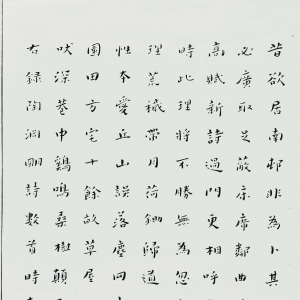 昔欲居南邨非為卜其
必廣取足蔽床席鄰曲
高賦新詩過門更相呼
時此理將不勝無為忽
理荒穢帶月荷鋤歸道
性本愛丘山誤落塵网
園田方宅十餘畝草屋
吠深巷中鷄鳴桑樹顛
右錄陶淵明詩數首時